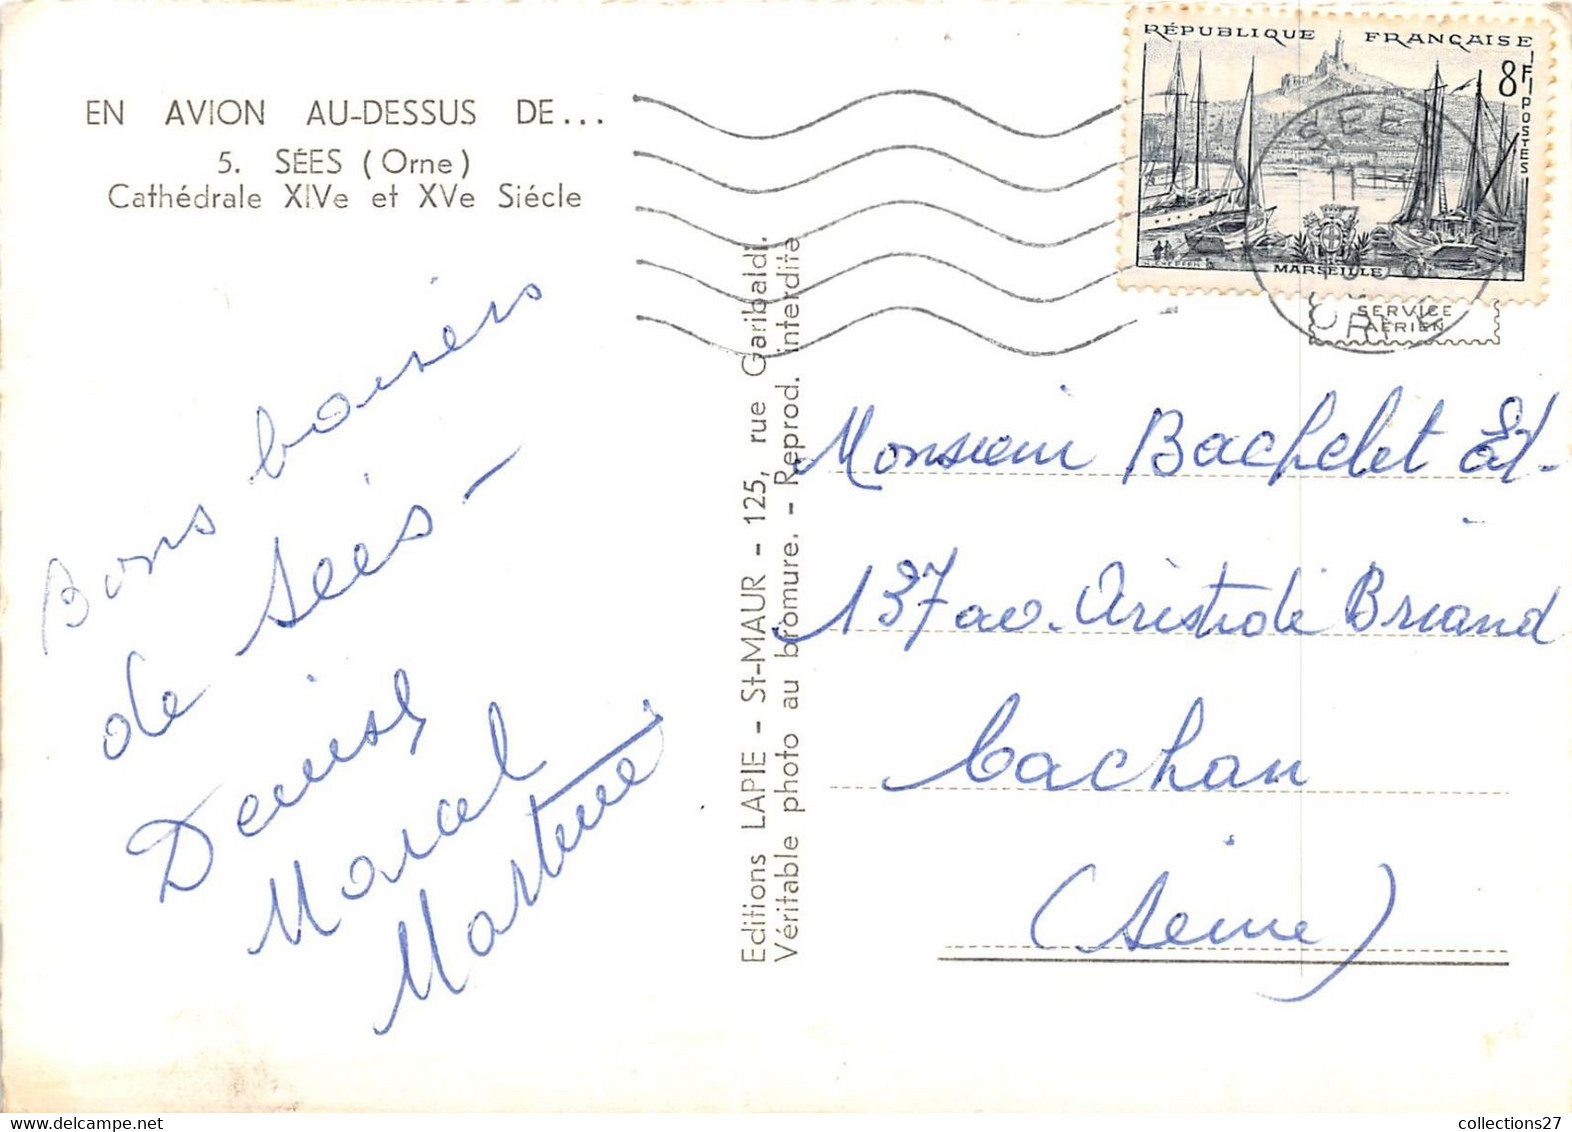 EN AVION AU-DESSUS DE...
5. SÉES (Orne)
Cathédrale XIVe et XVe Siécle
RÉPUBLIQUE FRANÇAISE
8F
POSTES
MARSEILLE
SEES
ORNE
SERVICE
AÉRIEN
Bons baisers
de Sées -
Denise
Marcel
Martine
Editions LAPIE - St-MAUR - 125, rue Garibaldi.
Véritable photo au bromure. - Reprod. interdite
Monsieur Bachelet Et-
137 av. Aristide Briand
Cachan
(Seine)
collections27